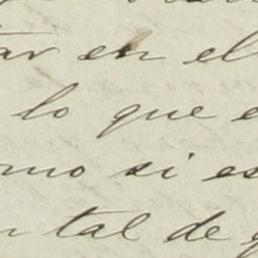 ar en el
lo que e
mo si es
tal de q